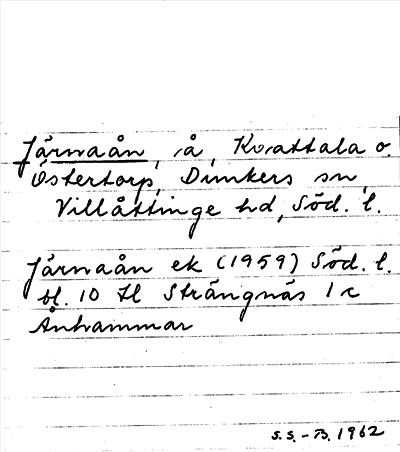 Järnaån, å, Kvattala o.
Östertorp, Dunkers sn,
Villåttinge hd, Söd. l.
Järnaån ek (1959) Söd. l.
bl. 10 H Strängnäs 1 c
Ånhammar
S.S. - B. 1962